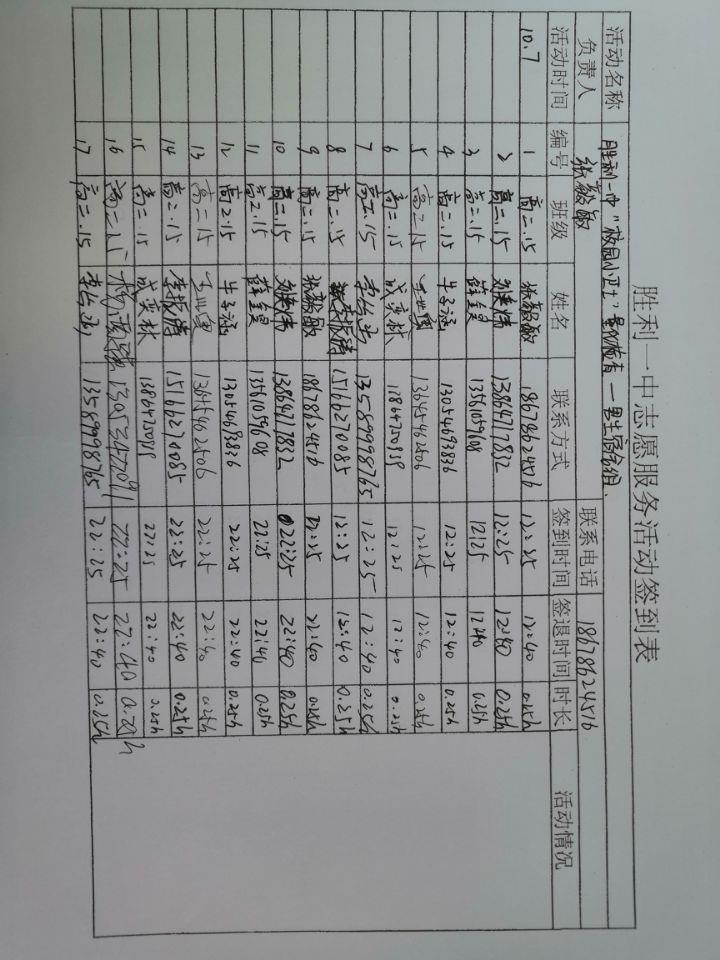 胜利一中志愿服务活动签到表
活动名称 胜利一中"校园小卫士"量化检查—男生宿舍组.
负责人 张毅敏 联系电话 18678624516
活动时间 编号 班级 姓名 联系方式 签到时间 签退时间 时长 活动情况
10.7 1 高二.15 张毅敏 18678624516 12:25 12:40 0.25h
2 高二.15 13864717832 12:25 12:40 0.25h
3 高二.15 薛昊 13561059608 12:25 12:40 0.25h
4 高二.15 牛子涵 13054693826 12:25 12:40 0.25h
5 高二15 王业寓 13645462506 12:25 12:40 0.25h
6 高二.15 成奕秋 12:25 12:40 0.25h
7 高二.15 13589998765 12:25 12:40 0.25h
8 高二.15 李振腾 15666270085 12:25 12:40 0.25h
9 高二.15 张毅敏 18678624516 22:25 22:40 0.25h
10 高二.15 13864717832 22:25 22:40 0.25h
11 高2.15 薛昊 13561059608 22:25 22:40 0.25h
12 高2.15 牛子涵 13054693826 22:25 22:40 0.25h
13 高二15 13645462506 22:25 22:40 0.25h
14 高二.15 李振腾 15666270085 22:25 22:40 0.25h
15 高二.15 成奕秋 22:25 22:40 0.25h
16 高二.15 22:25 22:40 0.25h
17 高二.15 13589998765 22:25 22:40 0.25h